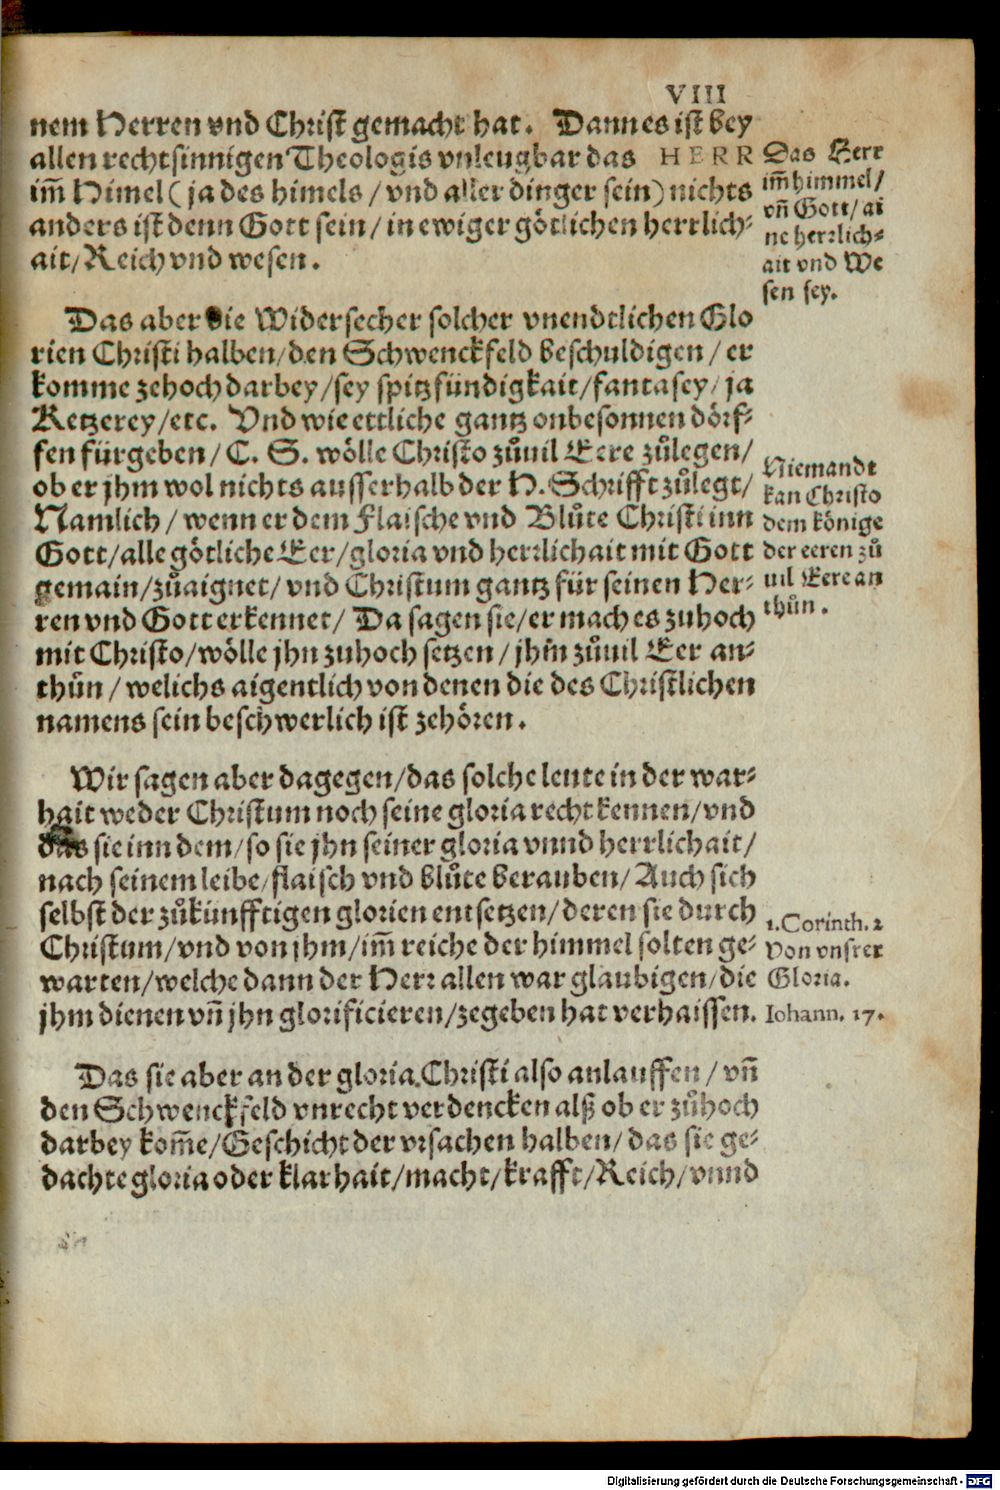 VIII
nem Herren vnd Christ gemacht hat. Dann es ist bey
allen rechtsinnigen Theologis vnleugbar das HERR
im̄ Himel (ja des himels / vnd aller dinger sein) nichts
anders ist denn Gott sein / in ewiger götlichen herrlich-
ait / Reich vnd wesen.
Das Herr
im̄ himmel /
vn̄ Gott / ai
ne herrlich-
ait vnd We
sen sey.
Das aber die Widersecher solcher vnendtlichen Glo
rien Christi halben / den Schwenckfeld beschuldigen / er
komme zehoch darbey / sey spitzfündigkait / fantasey / ja
Ketzerey / etc. Vnd wie ettliche gantz onbesonnen dörf-
fen fürgeben / C. S. wölle Christo zůuil Eere zůlegen /
ob er jhm wol nichts ausserhalb der H. Schrifft zůlegt /
Namlich / wenn er dem Flaische vnd Blůte Christi inn
Gott / alle götliche Eer / gloria vnd herrlichait mit Gott
gemain / zůaignet / vnd Christum gantz für seinen Her-
ren vnd Gott erkennet / Da sagen sie / er mach es zuhoch
mit Christo / wölle jhn zuhoch setzen / jhm zůuil Eer an-
thůn / welichs aigentlich von denen die des Christlichen
namens sein beschwerlich ist zehören.
Niemandt
kan Christo
dem könige
der eeren zů
uil Eere an
thůn.
Wir sagen aber dagegen / das solche leute in der war-
hait weder Christum noch seine gloria recht kennen / vnd
das sie inn dem / so sie jhn seiner gloria vnnd herrlichait /
nach seinem leibe / flaisch vnd blůte berauben / Auch sich
selbst der zůkünfftigen glorien entsetzen / deren sie durch
Christum / vnd von jhm / im̄ reiche der himmel solten ge-
warten / welche dann der Herr allen war glaubigen / die
jhm dienen vn̄ jhn glorificieren / zegeben hat verhaissen.
1. Corinth. 2
Von vnsrer
Gloria.
Iohann. 17.
Das sie aber an der gloria Christi also anlauffen / vn̄
den Schwenckfeld vnrecht verdencken alß ob er zůhoch
darbey kom̄e / Geschicht der vrsachen halben / das sie ge-
dachte gloria oder klarhait / macht / krafft / Reich / vnnd
Digitalisierung gefördert durch die Deutsche Forschungsgemeinschaft - DFG